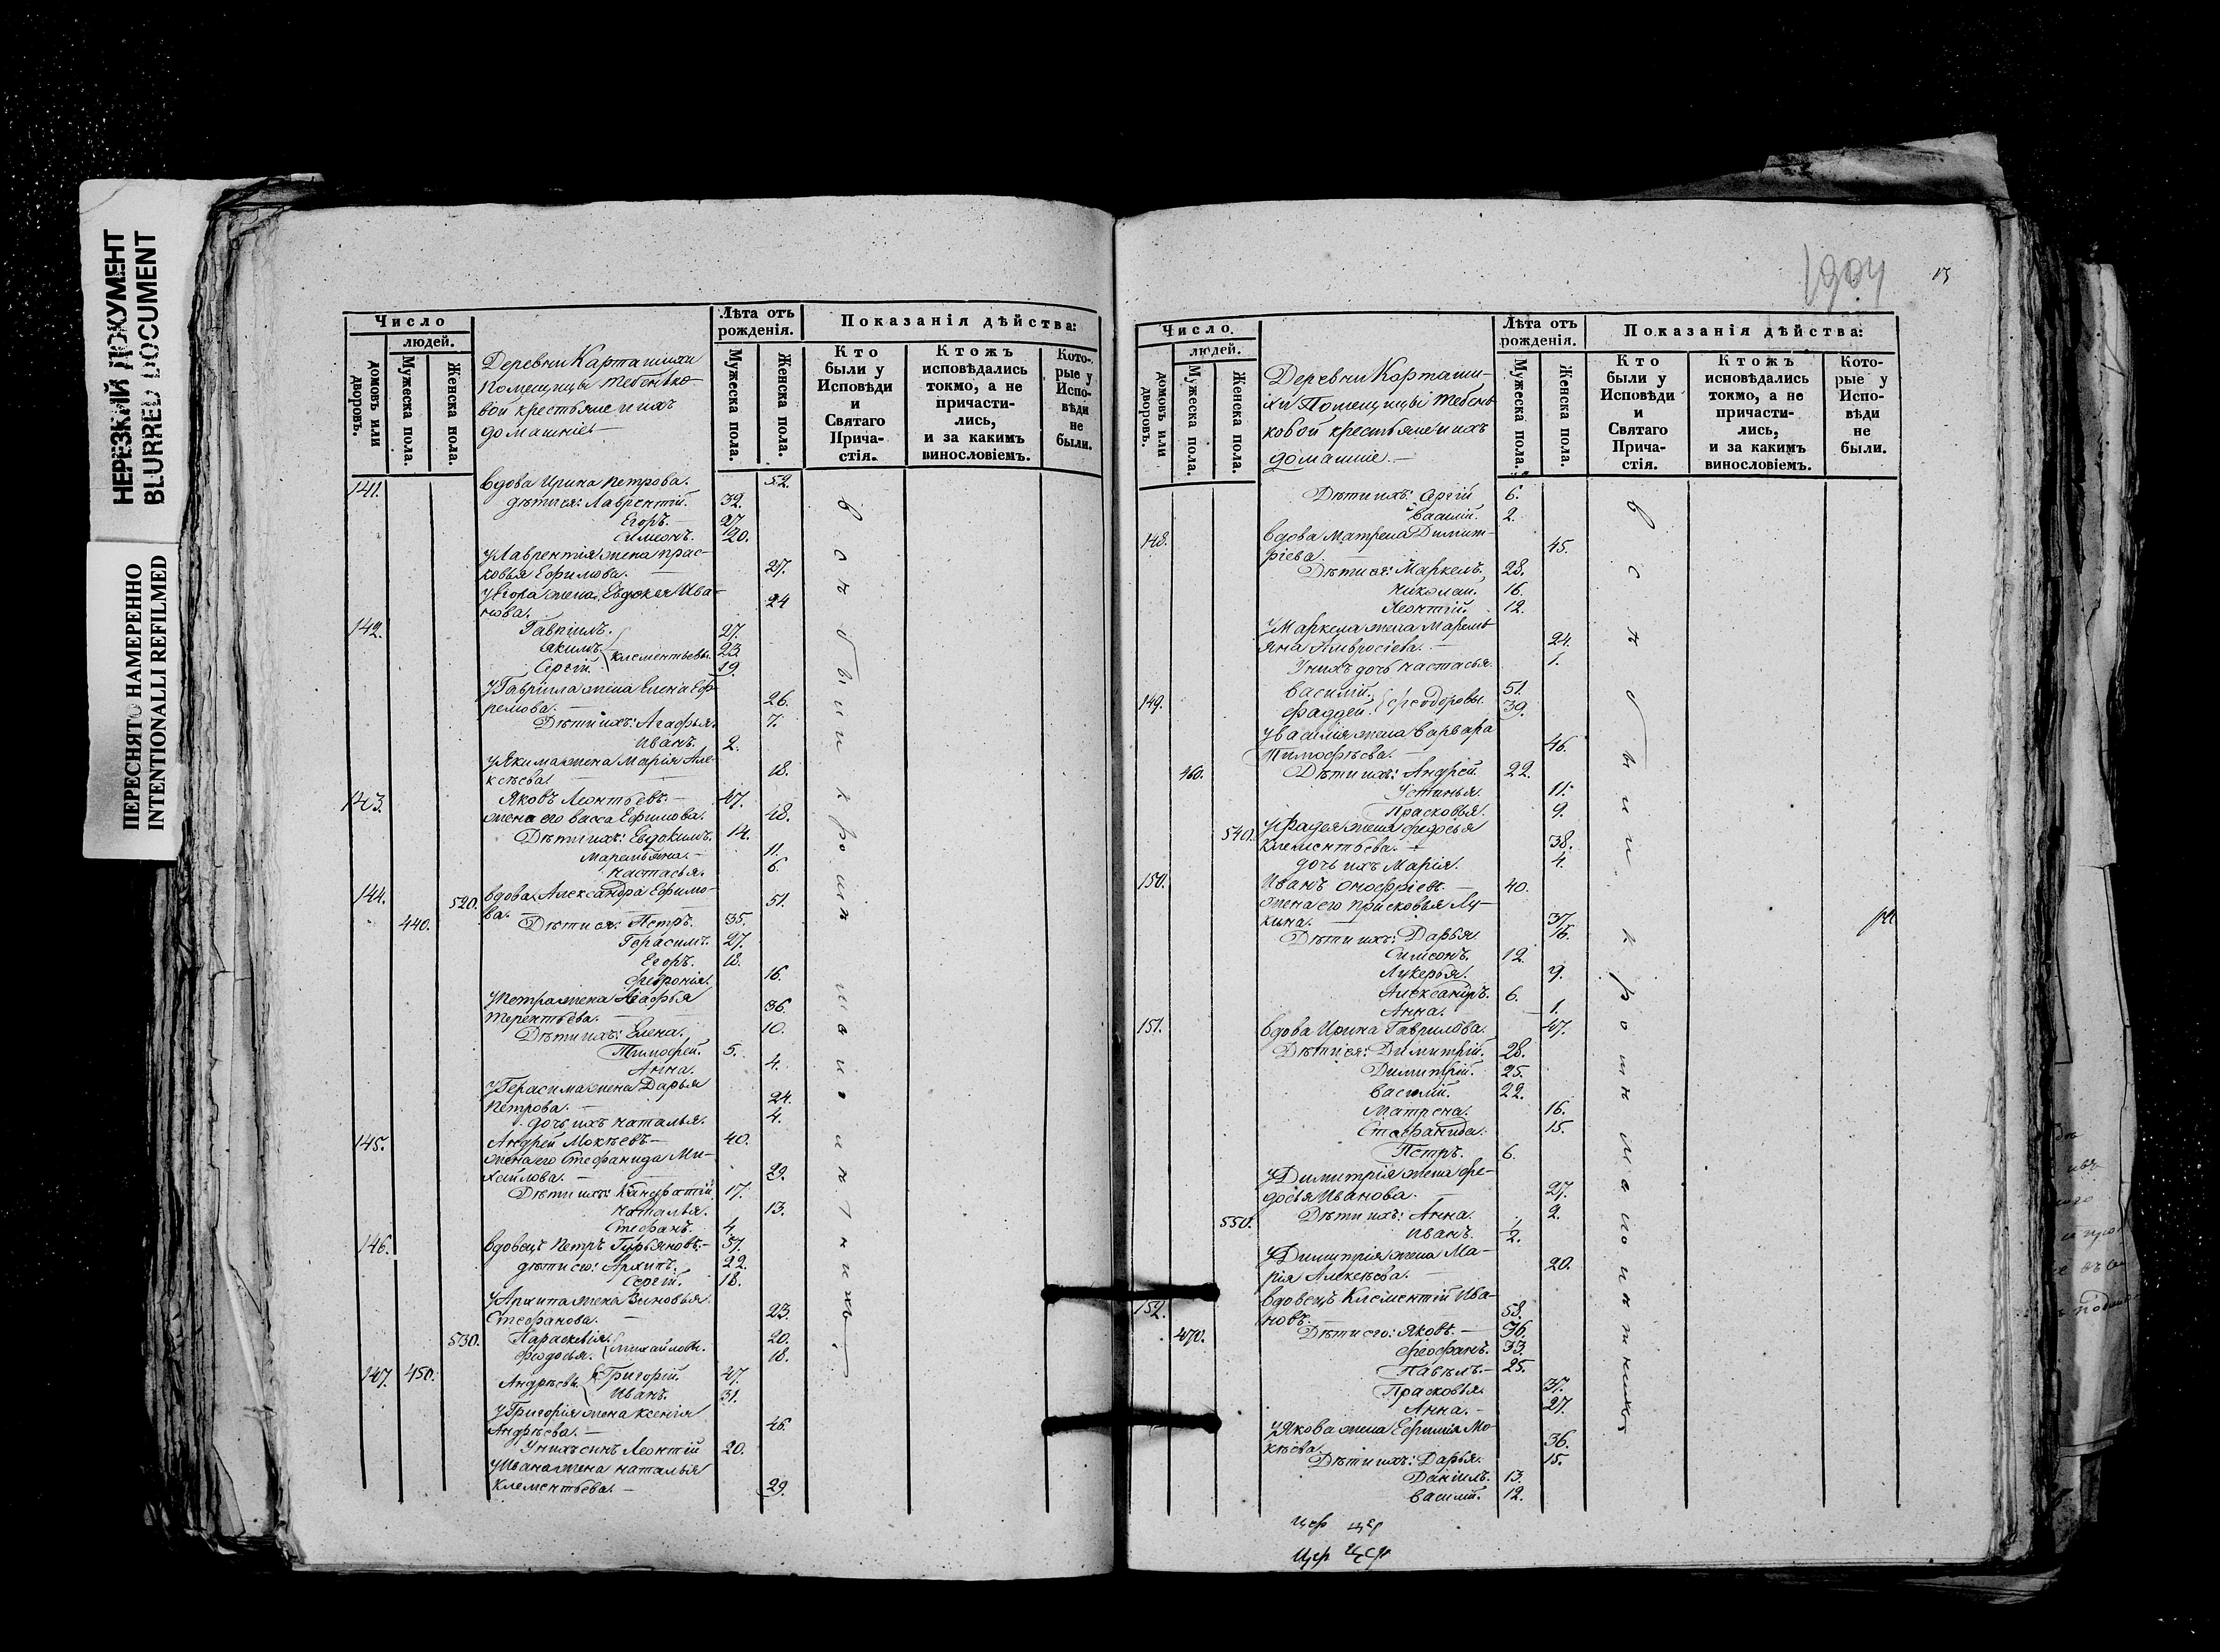 НЕРЕЗКИЙ ДОКУМЕНТ
BLURRED DOCUMENT
ПЕРЕСНЯТО НАМЕРЕННО
INTENTIONALLI REFILMED
Число
людей.
домовъ или дворовъ.
Мужеска пола.
Женска пола.
Деревни Карташихи
Помещицы Тебенько-
вой крестьяне и ихъ
домашніе
Лѣта отъ рожденія.
Мужеска пола.
Женска пола.
Показанія дѣйства:
Кто были у Исповѣди и Святаго Прича-стія.
Ктожъ исповѣдались токмо, а не причасти-лись, и за какимъ винословіемъ.
Кото-рые у Испо-вѣди не были.
141. вдова Ирина Петрова. 52.
дѣти ея: Лаврентій. 32.
Егоръ. 27
Симеонъ. 20.
У Лаврентія жена Прас-
ковья Ефимова. 27.
У Егора жена Евдокея Ива-
нова. 24
142. Гавріилъ. 27.
Якимъ. Клементьевы. 23
Сергій. 19.
У Гавріила жена Елена Еф-
ремова. 26.
Дѣти ихъ: Агафья. 7.
Иванъ. 2.
У Якима жена Марія Але-
ксѣева. 18.
143. Яковъ Леонтьевъ. 47.
жена его Васса Ефимова. 48.
Дѣти ихъ: Евдокимъ. 14.
Маремьяна. 11.
Настасья. 6.
144. 520. вдова Александра Ефимо-
ва. 51.
440. Дѣти ея: Петръ. 35.
Герасимъ. 27.
Егоръ. 18.
Февронія. 16.
У Петра жена Агафья
Терентьева. 36.
Дѣти ихъ: Елена. 10.
Тимофей. 5.
Анна. 4.
У Герасима жена Дарья
Петрова. 24.
дочь ихъ Наталья. 4.
145. Андрей Мокѣевъ 40.
жена его Стефанида Ми-
хайлова. 29.
Дѣти ихъ: Кандратій 17.
Наталья. 13.
Стефанъ. 4.
146. вдовецъ Петръ Гурьяновъ. 57.
дѣти его: Архипъ. 22.
Сергій. 18.
У Архипа жена Зиновья
Стефанова. 23.
530. Параскевія. 20.
Феодосья. Михайловы. 18.
147. 450. Андрѣевы Григорій. 47.
Иванъ. 31.
У Григорія жена Ксенія
Андрѣева. 46.
У нихъ сынъ Леонтій 20.
У Ивана жена Наталья
Клементьева. 29.
1904
13
Число.
людей.
домовъ или дворовъ.
Мужеска пола.
Женска пола.
Деревни Карташи-
хи Помещицы Тебень-
ковой крестьяне и ихъ
домашніе.
Лѣта отъ рожденія.
Мужеска пола.
Женска пола.
Показанія дѣйства:
Кто были у Исповѣди и Святаго Прича-стія.
Ктожъ исповѣдались токмо, а не причасти-лись, и за какимъ винословіемъ.
Кото-рые у Испо-вѣди не были.
Дѣти ихъ: Сергій 6.
Василій. 2.
148. вдова Матрена Димит-
ріева. 45.
Дѣти ея: Маркелъ, 28.
Николай. 16.
Леонтій. 12.
У Маркела жена Маремь-
яна Амвросіева. 24.
У нихъ дочь Настасья. 1.
149. Василій. 51.
Фаддей. Феодоровы. 39.
У Василія жена Варвара
Тимофѣева. 46.
460. Дѣти ихъ: Андрей. 22.
Устинья. 11.
Прасковья. 9.
540. У Фадея жена Федосья
Клементьева. 38.
дочь ихъ Марія. 4.
150. Иванъ Онофріевъ. 40.
жена его Прасковья Лу-
кина. 37.
Дѣти ихъ: Дарья. 16.
Симеонъ. 12.
Лукерья. 9.
Александръ. 6.
Анна. 1.
151. вдова Ирина Гаврилова. 47.
Дѣти ея: Димитрій. 28.
Димитрій. 25.
Василій. 22.
Матрена. 16.
Стефанида. 15.
Петръ. 6.
У Димитрія жена Фе-
досья Иванова. 27.
550. Дѣти ихъ: Анна. 2.
Иванъ. ½.
У Димитрія жена Ма-
рія Алексѣева. 20.
152. вдовецъ Клементій Ива-
новъ. 58.
470. Дѣти его: Яковъ. 36.
Феофанъ. 33.
Павелъ. 25.
Прасковья. 37.
Анна. 27.
У Якова жена Ефимія Мо-
кѣева. 36.
Дѣти ихъ: Дарья. 15.
Даніилъ. 13.
Василій. 12.